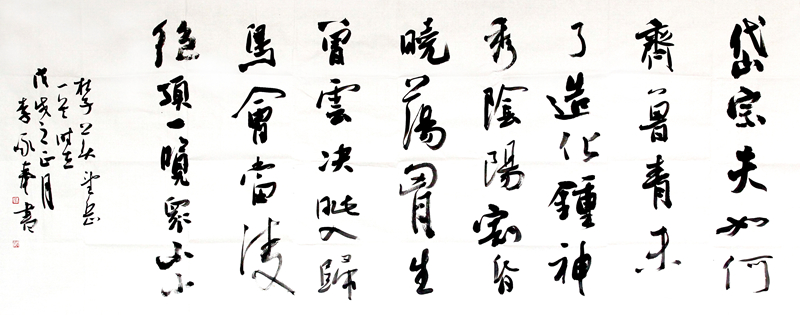 岱宗夫如何
齊魯青未
了造化鍾神
秀陰陽割昏
曉蕩胷生
曾雲决眦入歸
鳥會當凌
絕頂一覽眾山小
杜子美望岳
一首时在
戊戌之正月
李書